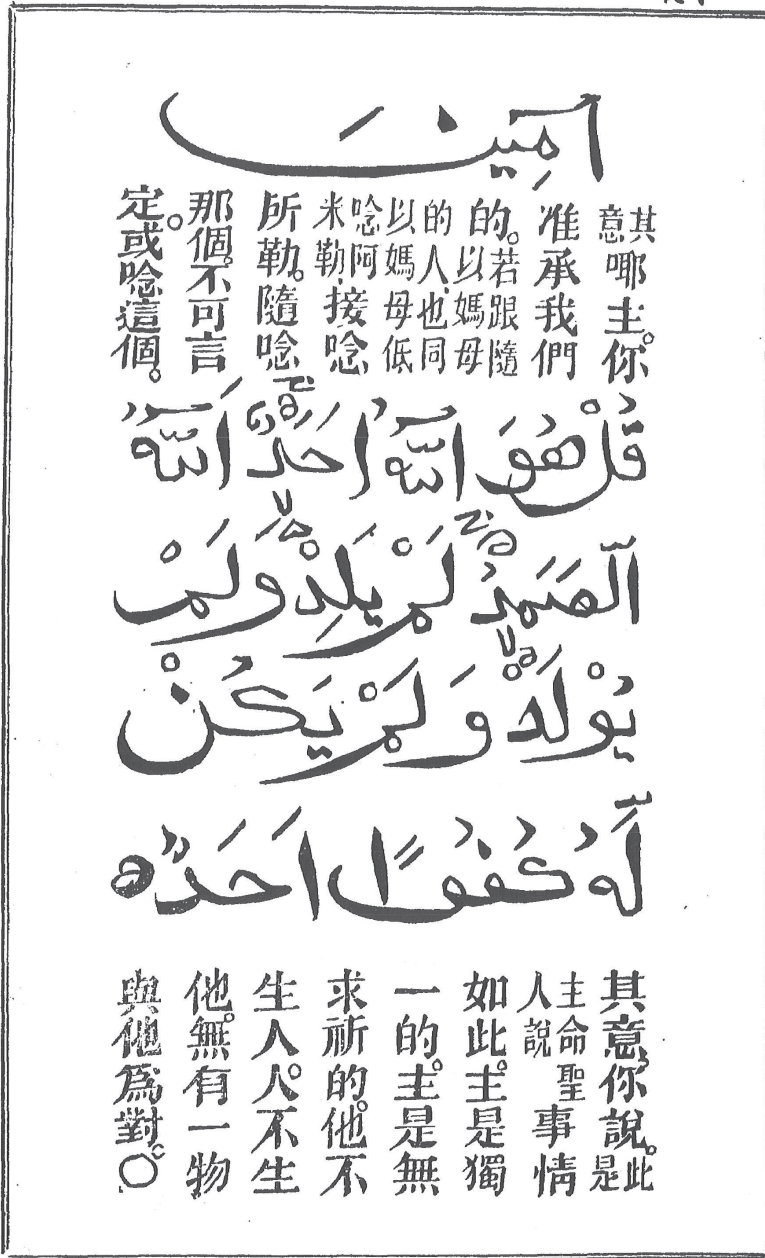 اٰمِيْنَ
其意㖿主。你
准承我們
的。若跟隨以媽母
的人也同以媽母低
唸阿米勒接唸
所勒。隨唸
那個。不可言
定或唸這個。
قُلْ هُوَ اللّٰهُ اَحَدٌ اَللّٰهُ
اَلصَّمَدُ لَمْ يَلِدْ وَلَمْ
يُوْلَدْ وَلَمْ يَكُنْ
لَّهُ كُفُوًا اَحَدٌ ه
其意,你說。此是
主命聖人說事情
如此。主是獨
一的。主是無
求祈的。他不
生人。人不生
他。無有一物
與他為對。〇